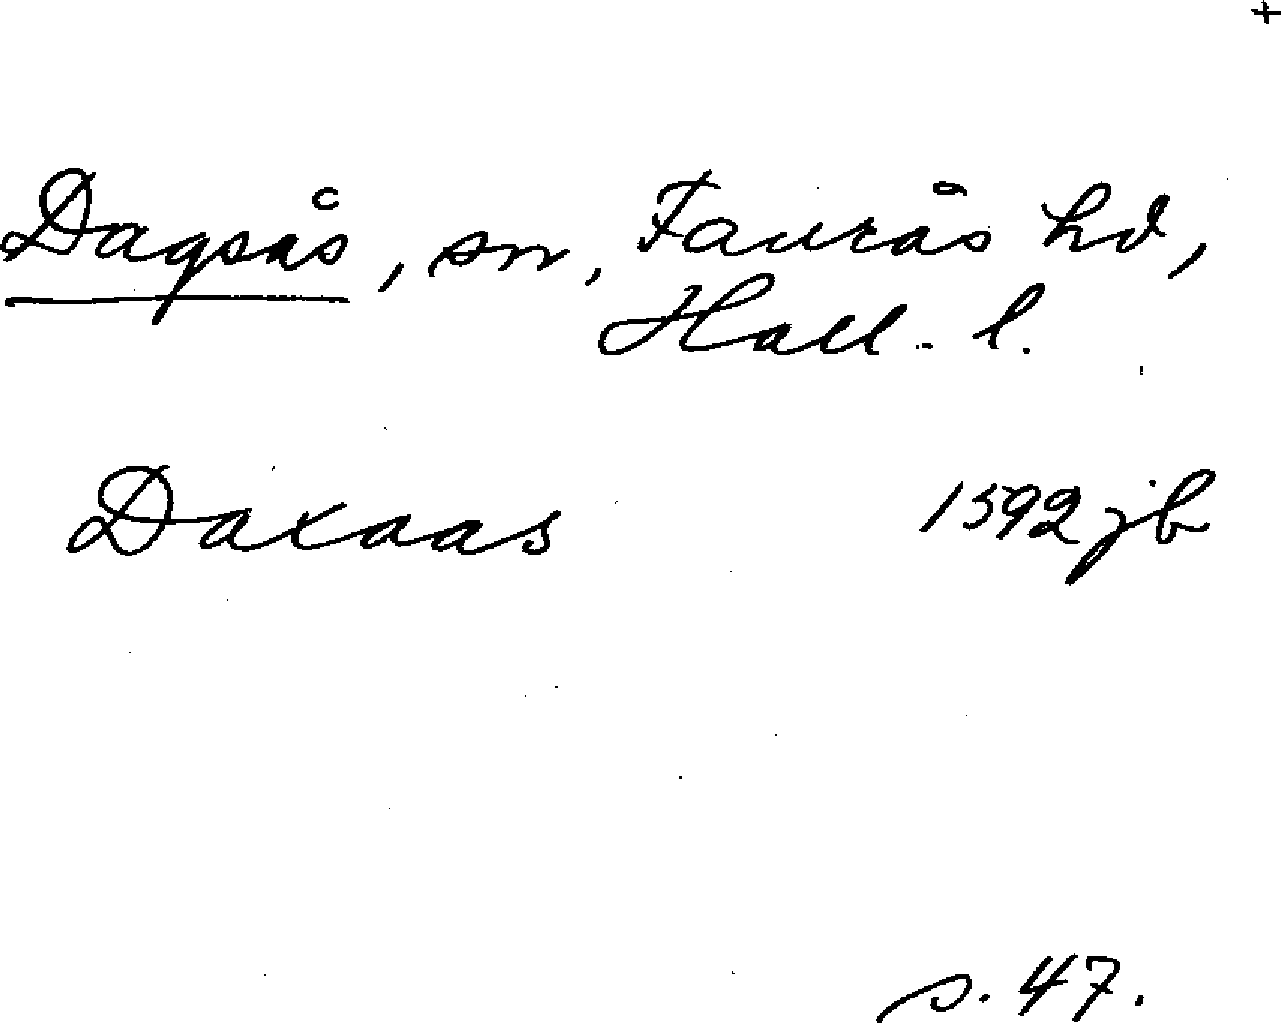 +
Dagsås, sn, Faurås hd,
Hall. l.
Daxaas 1592 jb
s. 47.